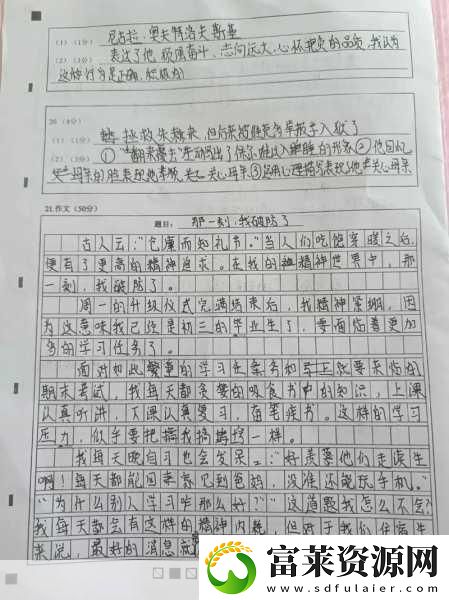 尼古拉·奥夫特洛夫斯基
(1)(1分)
(2)(3分) 表达了他 顽强奋斗、志向远大、心怀抱负的品质,我认为
这种行为是正确、积极的
20 (4分)
(1)(1分) 拯救朱赫来,但后来被维克多举报予入狱了
(2)(3分) ①“翻来覆去”生动写出了保尔难以入睡的形象②他回忆
母亲的脸表现他 关心母亲③运用心理描写表现了他 关心母亲
21.作文(50分)
题目: 那一刻,我破防了
古人云:“仓廪而知礼节。”当人们吃饱穿暖之后,
便有了更高的精神追求。在我的精神世界中,那
一刻,我破防了。
周一的升级仪式完满结束后,我精神紧绷,因
为这意味我已经是初三的毕业生了,要面临着更加
多的学习任务了。
面对如此繁重的学习任务和马上就要来临的
期末考试,我每天都贪婪的吸食书中的知识,上课
认真听讲,下课认真复习,奋笔疾书。这样的学习
压力,似乎要把我摘掉一样。
我每天晚自习也会发呆:“好羡慕他们走读生
啊!每天都能回家就见到爸妈,没准还能玩手机。”
“为什么别人学习咋那么好?”“这道题我怎么不会?”
我每天都会有这样的精神内耗,但对于我们住宿生
来说,最好的消息就
富莱资源网
www.sdfulaier.com